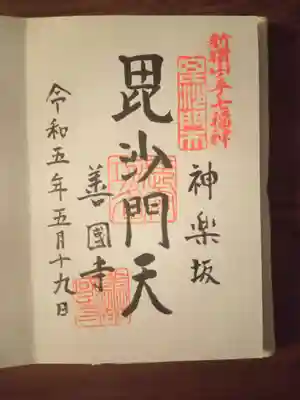 新宿山ノ手七福神
毘沙門天
神楽坂
毘沙門天
善國寺
令和五年五月十九日